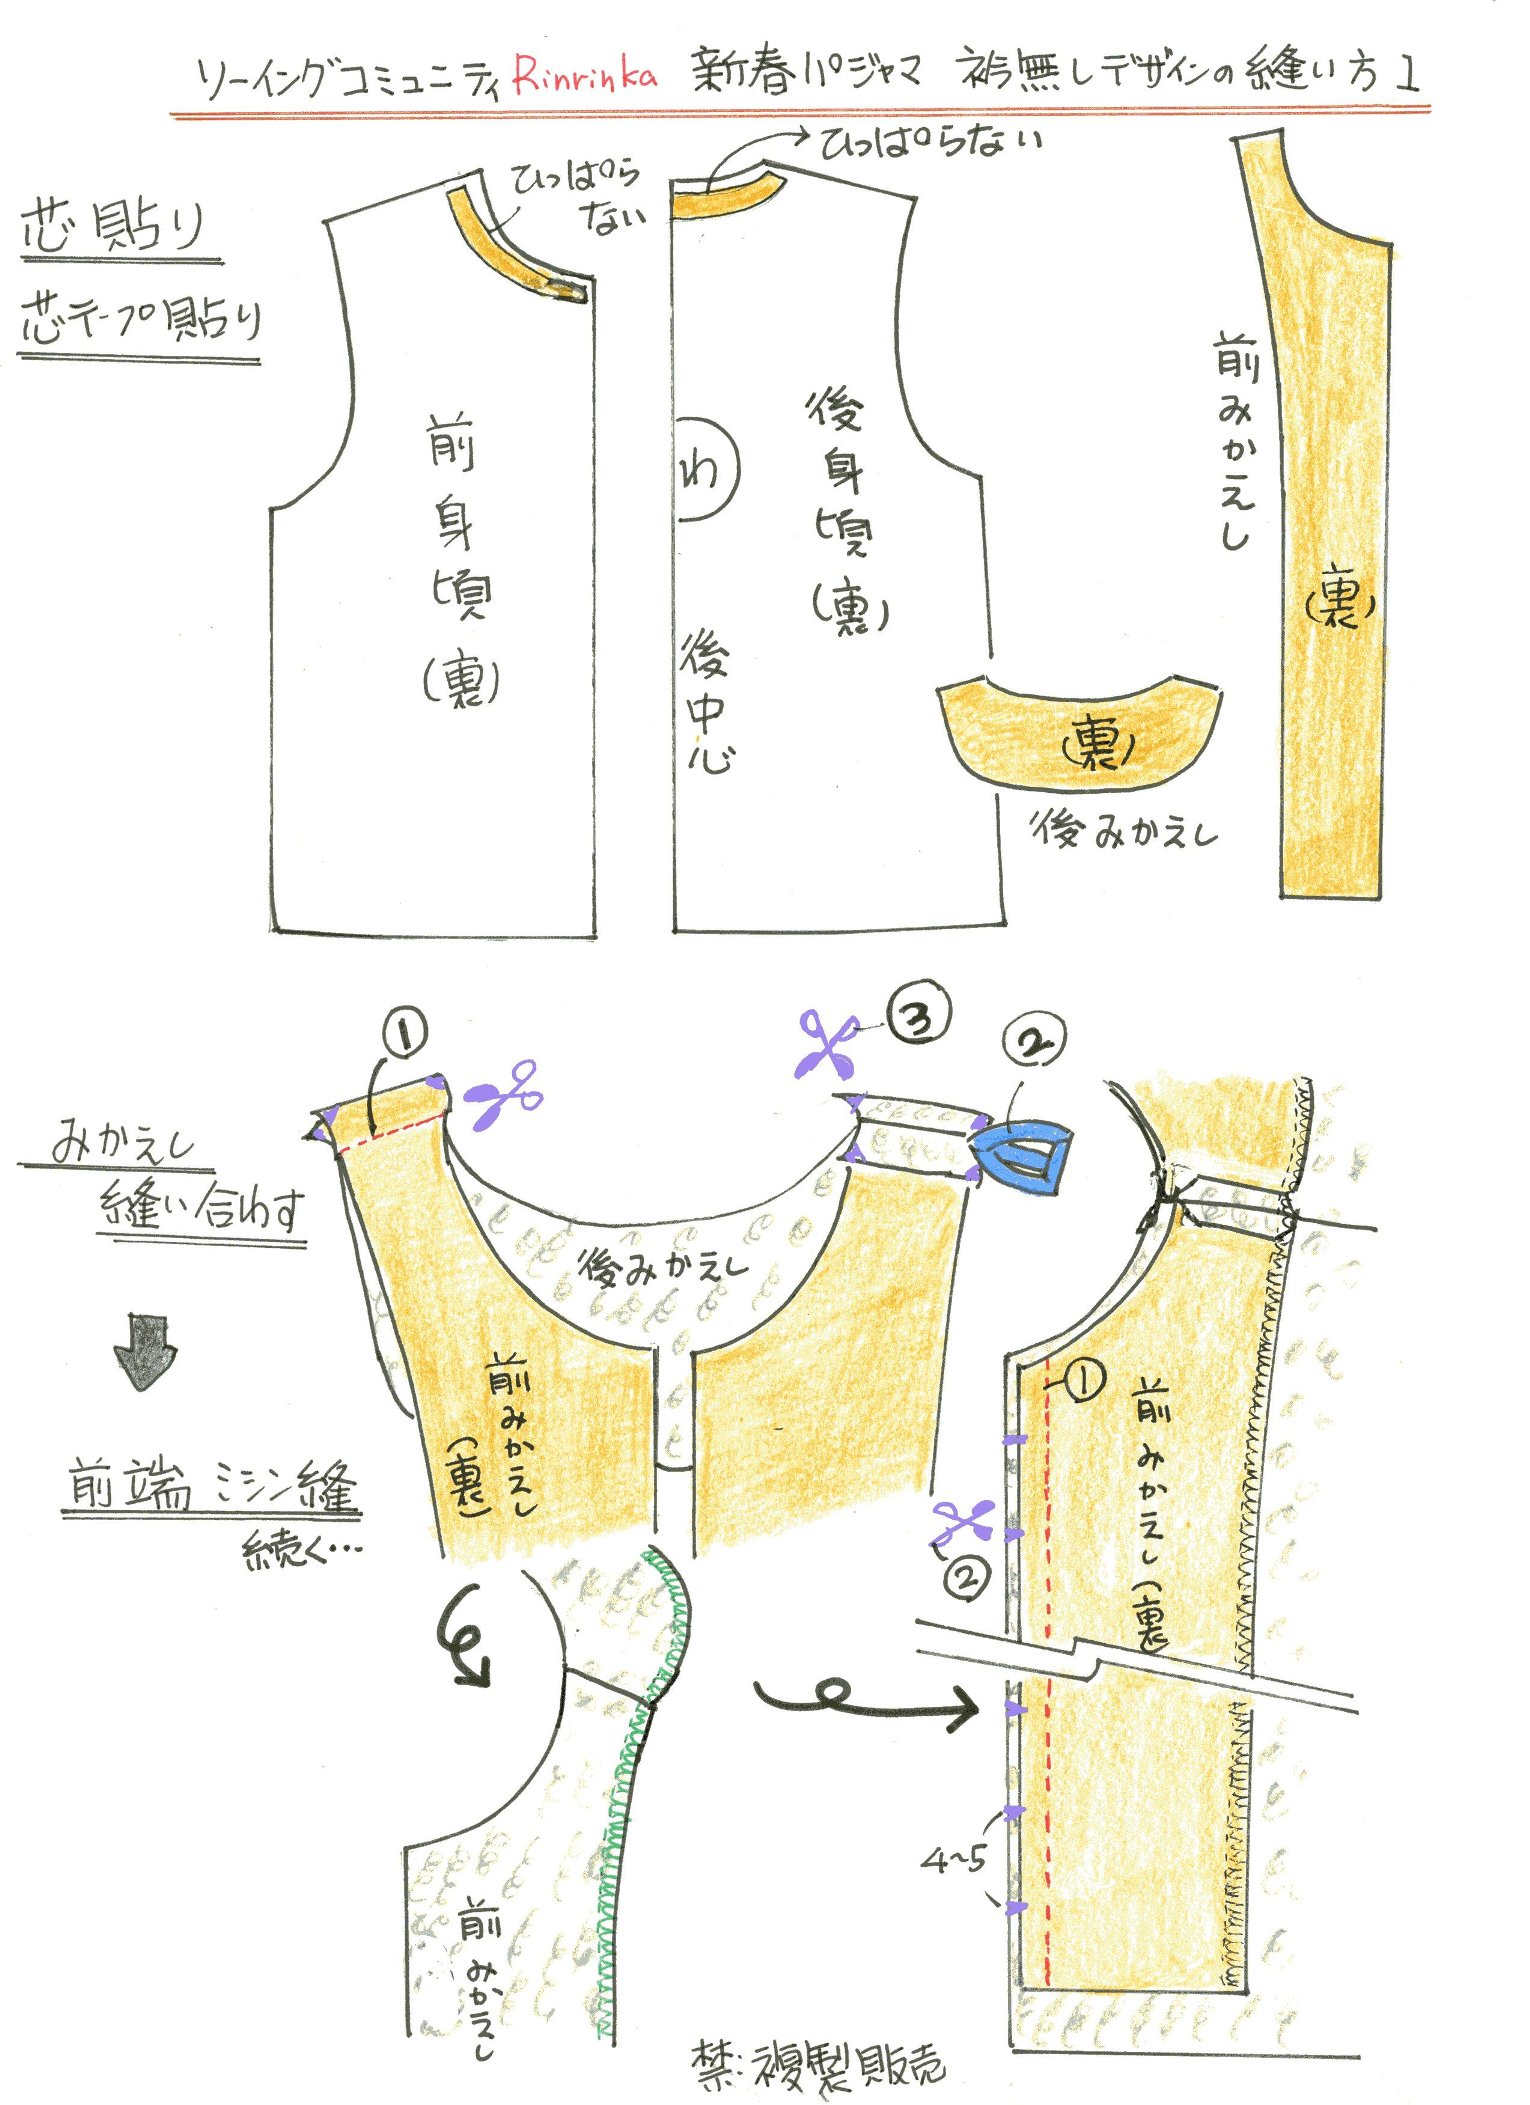 ソーイングコミュニティ Rinrinka 新春パジャマ 衿無しデザインの縫い方1
芯貼り
芯テープ貼り
ひっぱら
ない
ひっぱらない
前身頃(裏)
わ
後身頃(裏)
後中心
前みかえし
(裏)
(裏)
後みかえし
みかえし
縫い合わす
①
③
②
後みかえし
前みかえし(裏)
前端ミシン縫
続く…
①
前みかえし(裏)
②
4~5
前みかえし
禁:複製販売